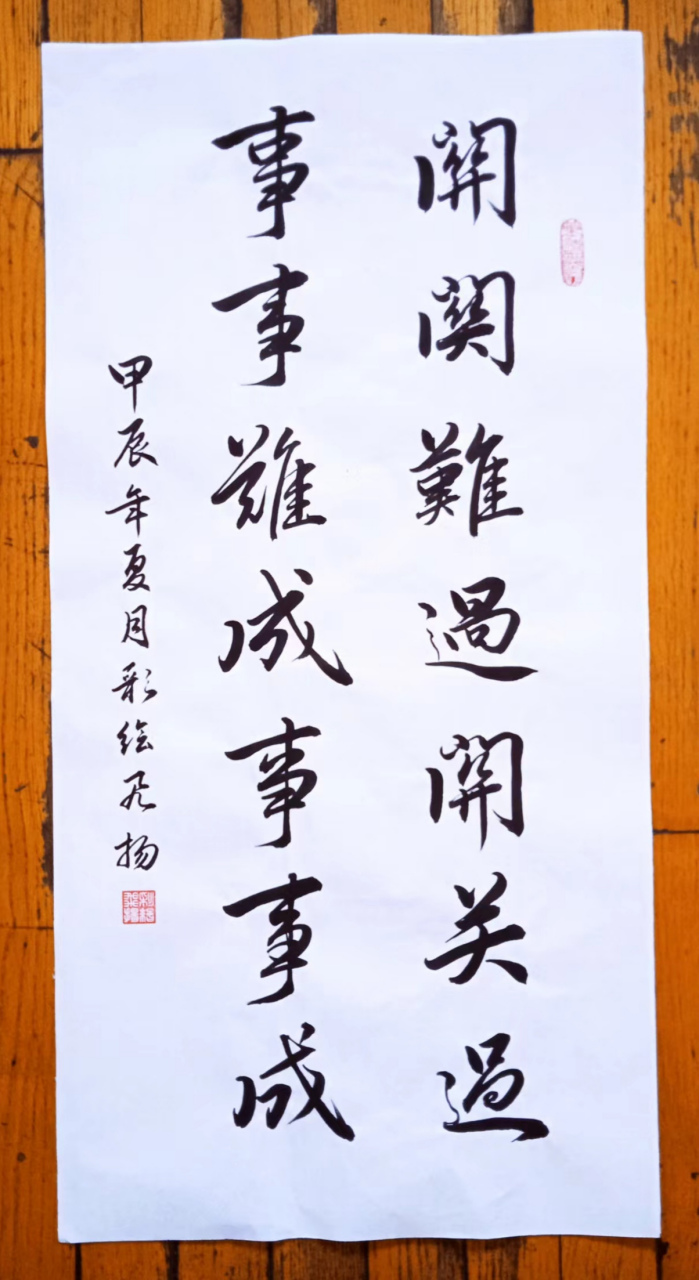 關関難過關关過
事事難成事事成
甲辰年夏月彩绘飞扬